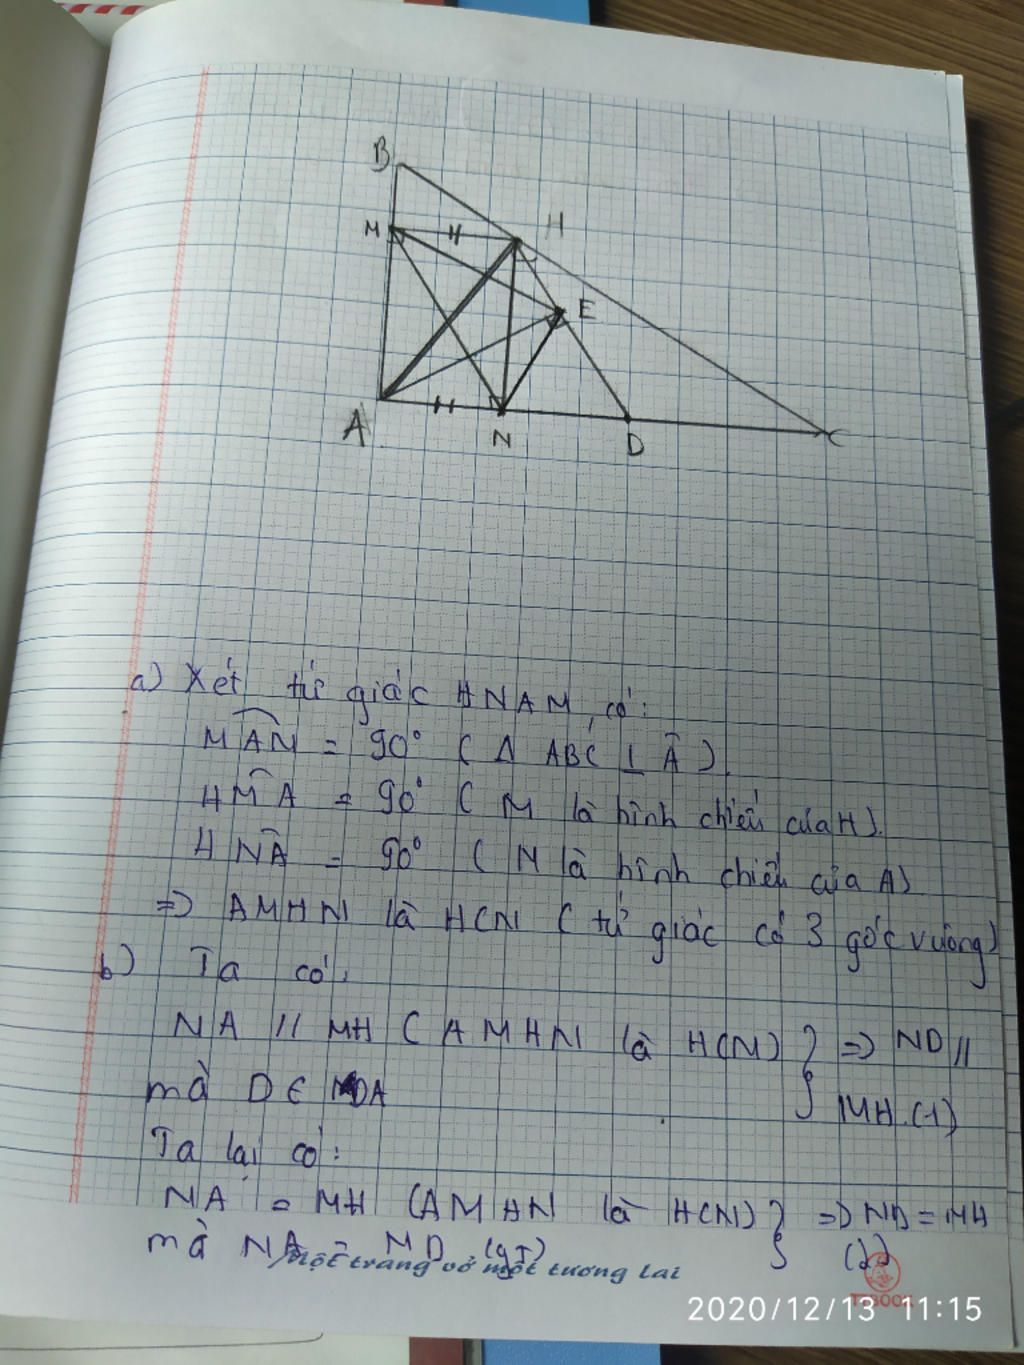 B
M
H
E
A
N
D
C
a) Xét tứ giác HNAM, có:
MÂN = 90° ( Δ ABC ⊥ Â ).
HM̂A = 90° ( M là hình chiếu của H).
HN̂A = 90° ( N là hình chiếu của A)
=> AMHN là HCN ( tứ giác có 3 góc vuông)
b) Ta có:
NA // MH ( AMHN là HCN) } => ND //
mà D ∈ NDA
MH (1)
Ta lại có:
NA = MH (AMHN là HCN) } => ND = MH
mà NA = MD (gt)
(2)
Một trang vở một tương lai
TTBOOK
2020/12/13 11:15